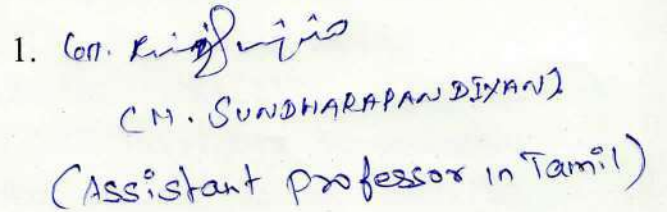 1.
(M. SUNDHARAPANDIYAN)
(Assistant professor in Tamil)